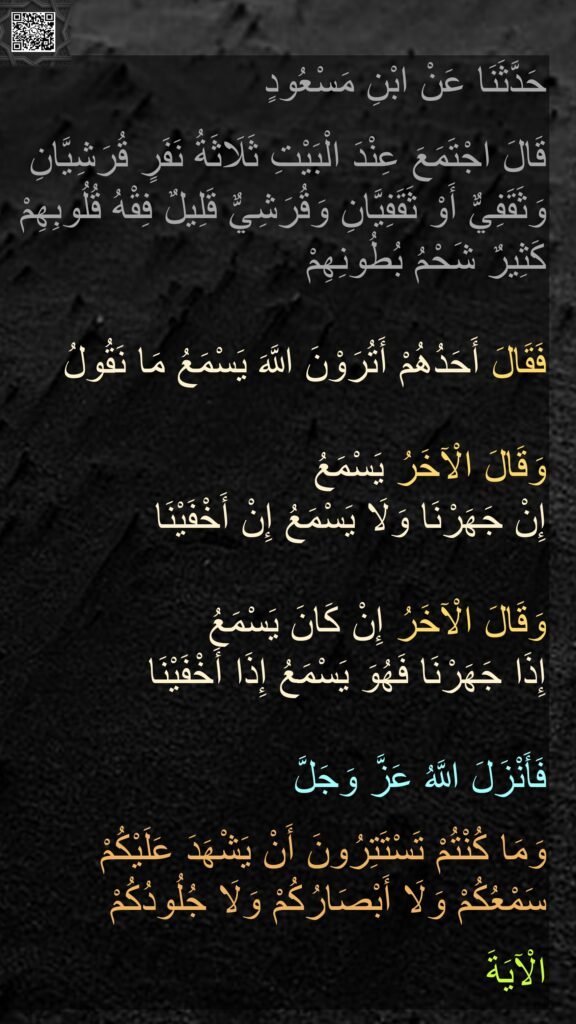 حَدَّثَنَا عَنْ ابْنِ مَسْعُودٍ
قَالَ اجْتَمَعَ عِنْدَ الْبَيْتِ ثَلَاثَةُ نَفَرٍ قُرَشِيَّانِ
وَثَقَفِيٌّ أَوْ ثَقَفِيَّانِ وَقُرَشِيٌّ قَلِيلٌ فِقْهُ قُلُوبِهِمْ
كَثِيرٌ شَحْمُ بُطُونِهِمْ
فَقَالَ أَحَدُهُمْ أَتُرَوْنَ اللَّهَ يَسْمَعُ مَا نَقُولُ
وَقَالَ الْآخَرُ يَسْمَعُ
إِنْ جَهَرْنَا وَلَا يَسْمَعُ إِنْ أَخْفَيْنَا
وَقَالَ الْآخَرُ إِنْ كَانَ يَسْمَعُ
إِذَا جَهَرْنَا فَهُوَ يَسْمَعُ إِذَا أَخْفَيْنَا
فَأَنْزَلَ اللَّهُ عَزَّ وَجَلَّ
وَمَا كُنْتُمْ تَسْتَتِرُونَ أَنْ يَشْهَدَ عَلَيْكُمْ
سَمْعُكُمْ وَلَا أَبْصَارُكُمْ وَلَا جُلُودُكُمْ
الْآيَةَ